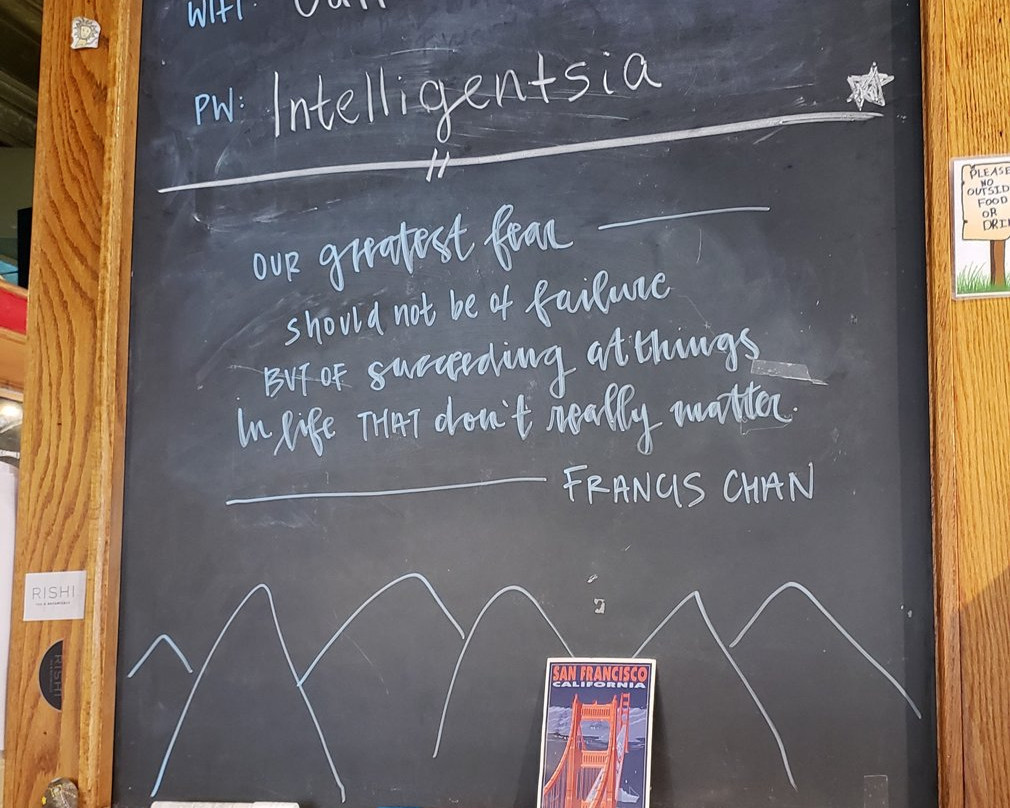 WIFI:
PW: Intelligentsia
OUR greatest fear
should not be of failure
BUT OF succeeding at things
in life THAT don't really matter.
FRANCIS CHAN
PLEASE
NO
OUTSID
FOOD
OR
DRI
RISHI
RISHI
SAN FRANCISCO
CALIFORNIA